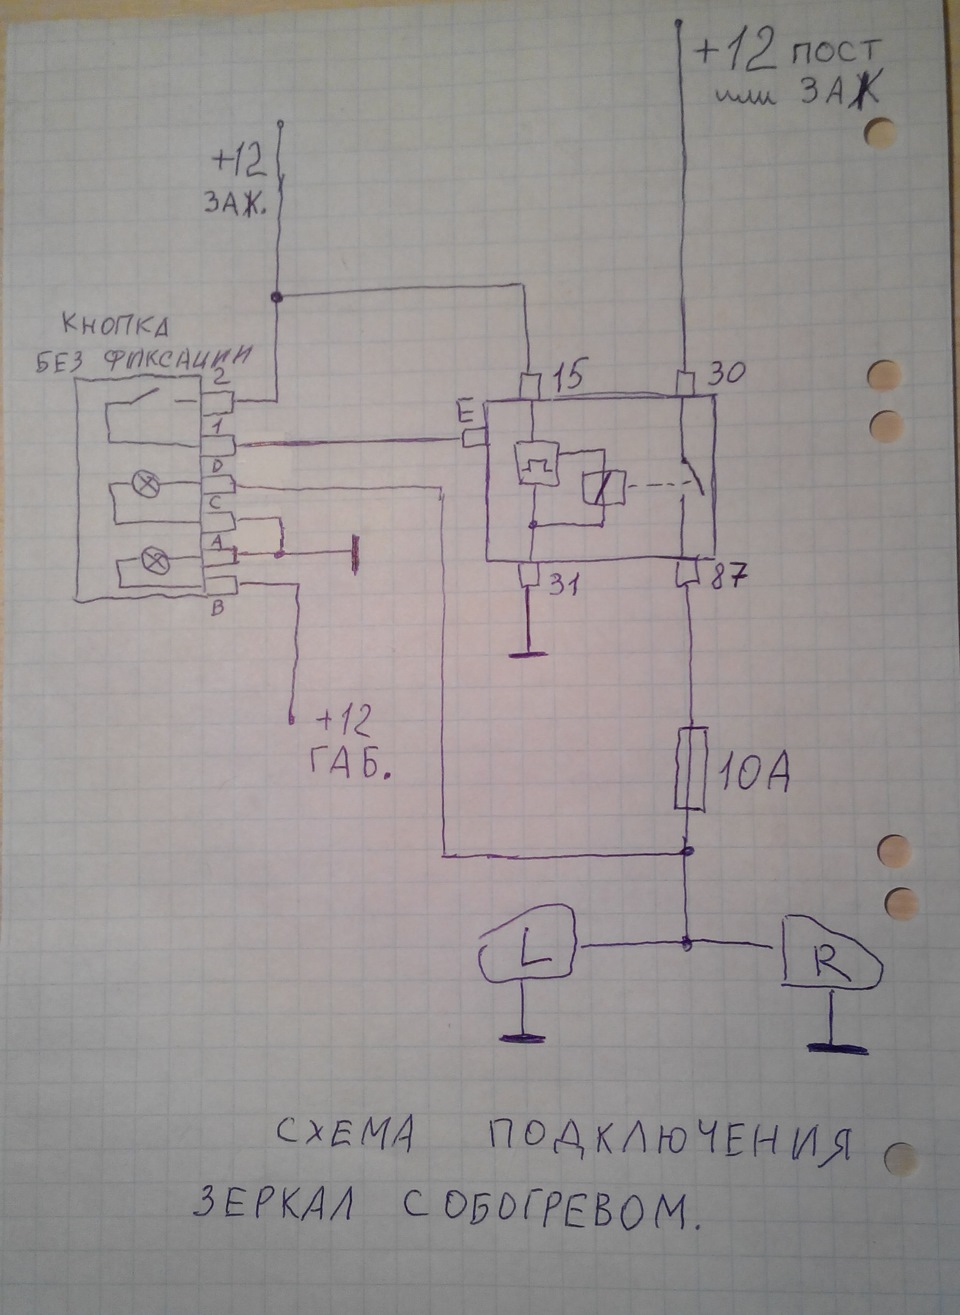 +12 ПОСТ
или ЗАЖ
+12
ЗАЖ.
КНОПКА
БЕЗ ФИКСАЦИИ
2
1
D
C
A
B
E
15
30
31
87
+12
ГАБ.
10А
L
R
СХЕМА ПОДКЛЮЧЕНИЯ
ЗЕРКАЛ С ОБОГРЕВОМ.